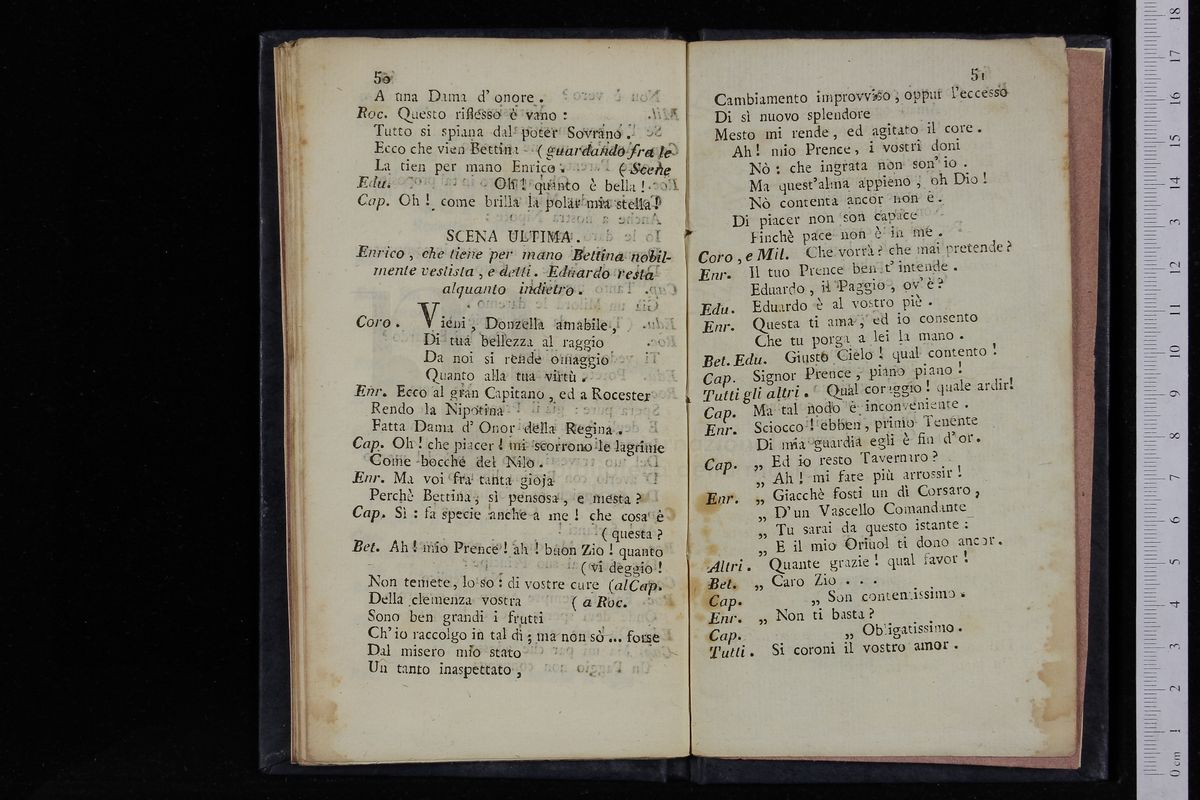 50
A una Dama d' onore .
Roc. Questo riflesso è vano :
Tutto si spiana dal poter Sovrano .
Ecco che vien Bettina ( guardando fra le
La tien per mano Enrico . ( Scene
Edu. Oh ! quanto è bella !
Cap. Oh ! come brilla la polar mia stella !
SCENA ULTIMA .
Enrico , che tiene per mano Bettina nobil-
mente vestista , e detti . Eduardo resta
alquanto indietro .
Coro . Vieni , Donzella amabile ,
Di tua bellezza al raggio
Da noi si rende omaggio
Quanto alla tua virtù .
Enr. Ecco al gran Capitano , ed a Rocester
Rendo la Nipotina
Fatta Dama d' Onor della Regina .
Cap. Oh ! che piacer ! mi scorrono le lagrime
Come bocche del Nilo .
Enr. Ma voi fra tanta gioja
Perchè Bettina , sì pensosa , e mesta ?
Cap. Sì : fa specie anche a me ! che cosa è
( questa ?
Bet. Ah ! mio Prence ! ah ! buon Zio ! quanto
( vi deggio !
Non temete , lo so : di vostre cure (al Cap.
Della clemenza vostra ( a Roc.
Sono ben grandi i frutti
Ch' io raccolgo in tal dì ; ma non sò ... forse
Dal misero mio stato
Un tanto inaspettato ,
51
Cambiamento improvviso , oppur l'eccesso
Di sì nuovo splendore
Mesto mi rende , ed agitato il core .
Ah ! mio Prence , i vostri doni
Nò : che ingrata non son' io .
Ma quest'alma appieno , oh Dio !
Nò contenta ancor non è .
Di piacer non son capace
Finchè pace non è in me .
Coro , e Mil. Che vorrà ? che mai pretende ?
Enr. Il tuo Prence ben t' intende .
Eduardo , il Paggio , ov' è ?
Edu. Eduardo è al vostro piè .
Enr. Questa ti ama , ed io consento
Che tu porga a lei la mano .
Bet. Edu. Giusto Cielo ! qual contento !
Cap. Signor Prence , piano piano !
Tutti gli altri . Qual coraggio ! quale ardir!
Cap. Ma tal nodo è inconveniente .
Enr. Sciocco ! ebben , primo Tenente
Di mia guardia egli è fin d'or .
Cap. „ Ed io resto Tavernaro ?
„ Ah ! mi fate più arrossir !
Enr. „ Giacchè fosti un dì Corsaro ,
„ D'un Vascello Comandante
„ Tu sarai da questo istante :
„ E il mio Oriuol ti dono ancor .
Altri . Quante grazie ! qual favor !
Bet. „ Caro Zio . . .
Cap. „ Son contentissimo .
Enr. „ Non ti basta ?
Cap. „ Obligatissimo .
Tutti . Si coroni il vostro amor .
18
17
16
15
14
13
12
11
10
9
8
7
6
5
4
3
2
1
0 cm